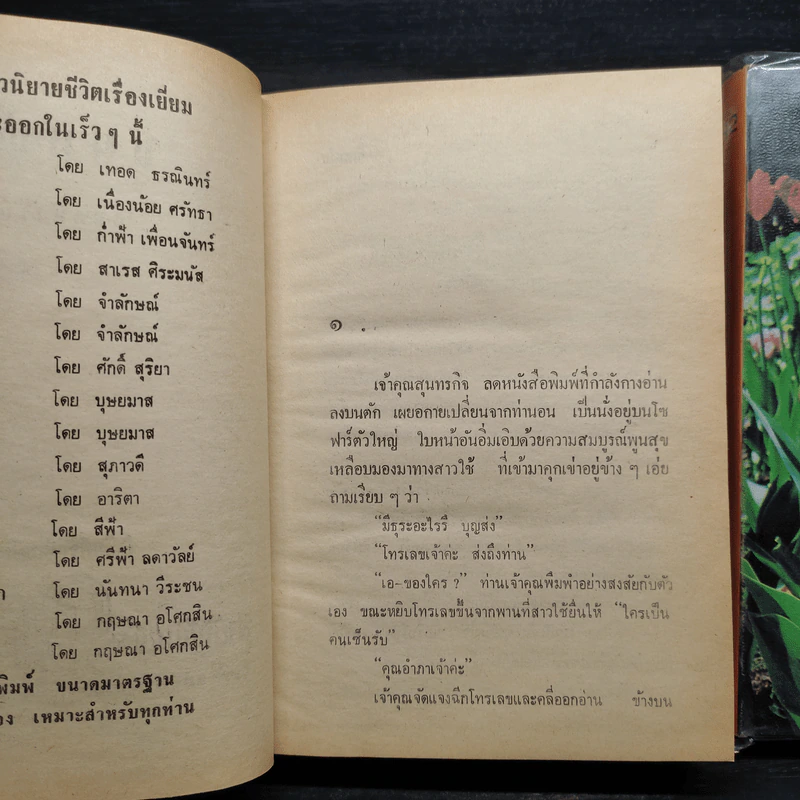 วนิยายชีวิตเรื่องเยี่ยม
ออกในเร็ว ๆ นี้
โดย เทอด ธรณินทร์
โดย เนื่องน้อย ศรัทธา
โดย ก่ำฟ้า เพื่อนจันทร์
โดย สาเรส ศิระมนัส
โดย จำลักษณ์
โดย จำลักษณ์
โดย ศักดิ์ สุริยา
โดย บุษยมาส
โดย บุษยมาส
โดย สุภาวดี
โดย อาริตา
โดย สีฟ้า
โดย ศรีฟ้า ลดาวัลย์
โดย นันทนา วีระชน
โดย กฤษณา อโศกสิน
โดย กฤษณา อโศกสิน
พิมพ์ ขนาดมาตรฐาน
อง เหมาะสำหรับทุกท่าน
๑
เจ้าคุณสุนทรกิจ ลดหนังสือพิมพ์ที่กำลังกางอ่าน
ลงบนตัก เผยอกายเปลี่ยนจากท่านอน เป็นนั่งอยู่บนโซ
ฟาร์ตัวใหญ่ ใบหน้าอันอิ่มเอิบด้วยความสมบูรณ์พูนสุข
เหลือบมองมาทางสาวใช้ ที่เข้ามาคุกเข่าอยู่ข้าง ๆ เอ่ย
ถามเรียบ ๆ ว่า
“มีธุระอะไรรึ บุญส่ง”
“โทรเลขเจ้าค่ะ ส่งถึงท่าน”
“เอ-ของใคร ?” ท่านเจ้าคุณพึมพำอย่างสงสัยกับตัว
เอง ขณะหยิบโทรเลขขึ้นจากพานที่สาวใช้ยื่นให้ “ใครเป็น
คนเซ็นรับ”
“คุณอำภาเจ้าค่ะ”
เจ้าคุณจัดแจงฉีกโทรเลขและคลี่ออกอ่าน ข้างบน